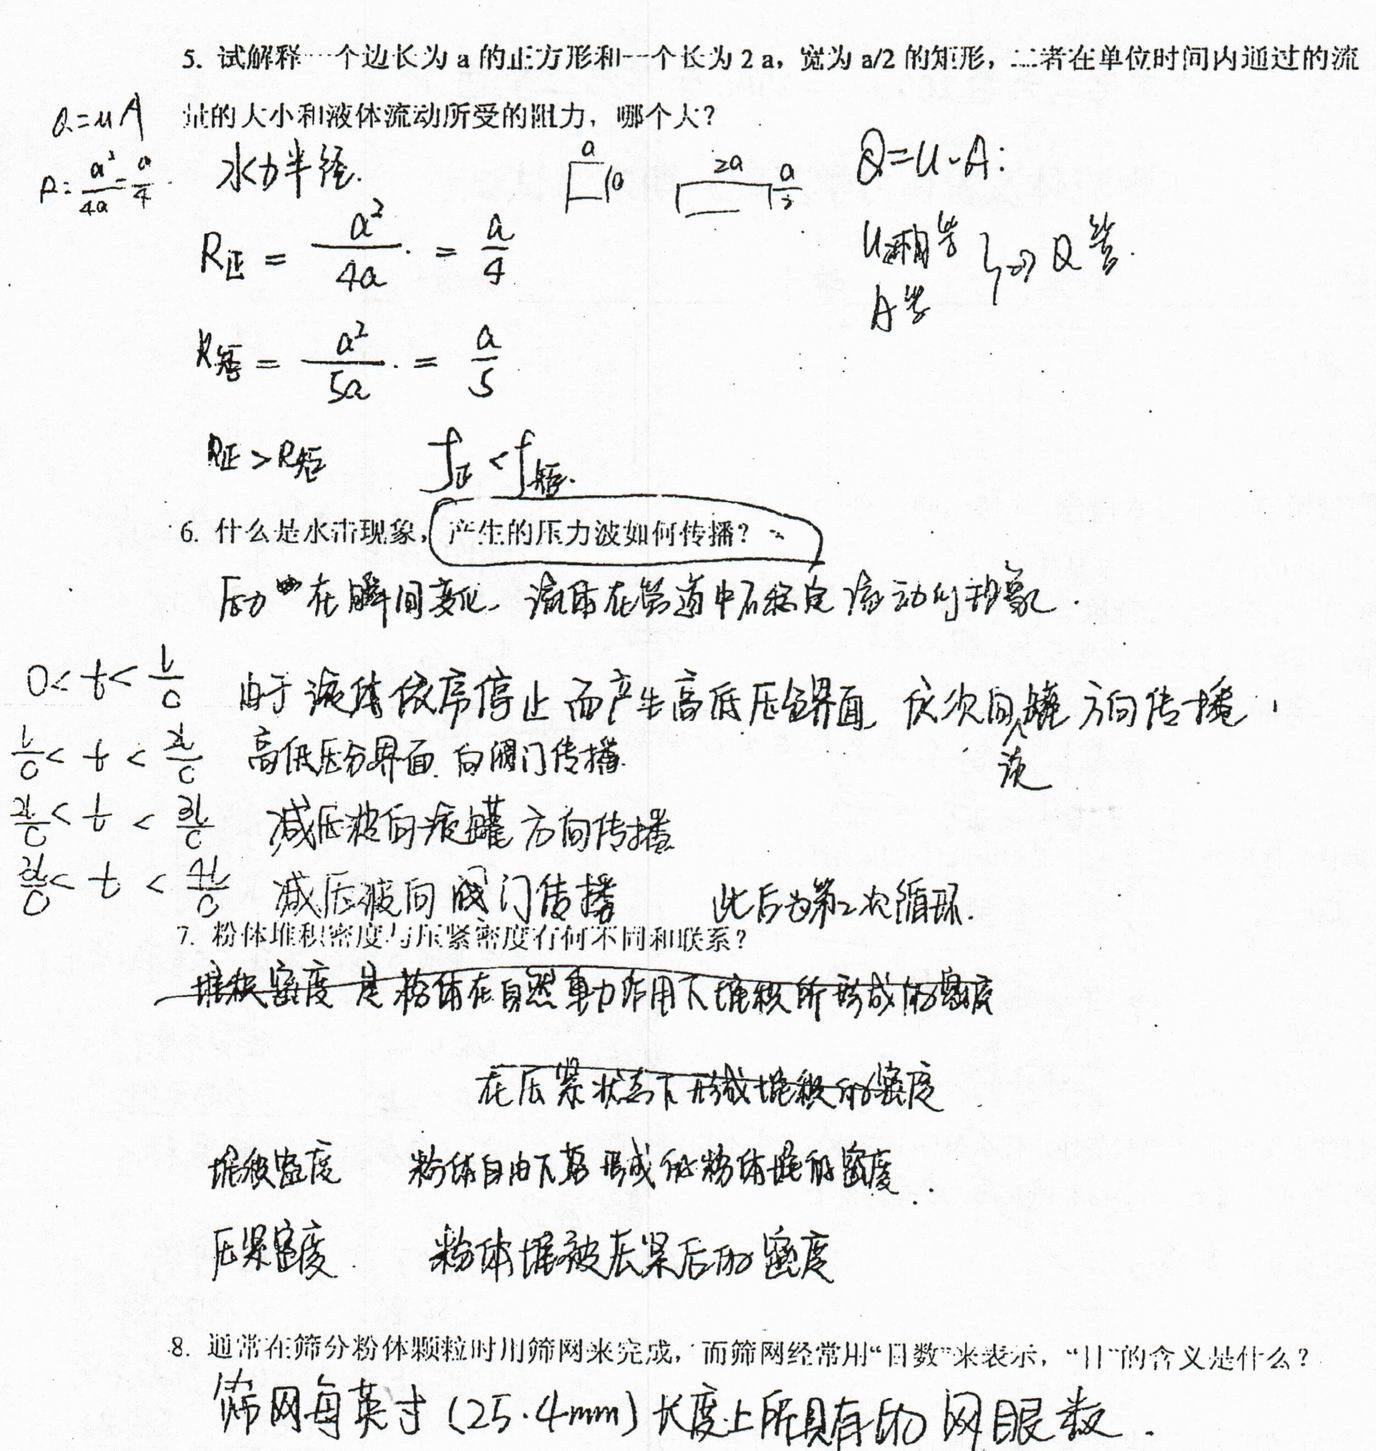 5. 试解释一个边长为 a 的正方形和一个长为 2a，宽为 a/2 的矩形，二者在单位时间内通过的流
量的大小和液体流动所受的阻力，哪个大？
Q=uA
R=a²/4a=a/4
水力半径.
a a
2a a/2
Q=u·A:
R正 = a²/4a = a/4
u相等
A等
⇒ Q等.
R矩 = a²/5a = a/5
R正>R矩 f正<f矩.
6. 什么是水击现象，产生的压力波如何传播？
压力 在瞬间变化. 流体在管道中不稳定流动的现象.
0<t<L/C 由于液体依序停止而产生高低压分界面 依次向液罐方向传播,
L/C<t<2L/C 高低压分界面 向阀门传播.
2L/C<t<3L/C 减压波向液罐方向传播
3L/C<t<4L/C 减压波向阀门传播 此后为第2次循环.
7. 粉体堆积密度与压紧密度有何不同和联系？
堆积密度是粉体在自然重力作用下堆积所形成的密度
在压紧状态下形成堆积的密度.
堆积密度 粉体自由下落形成的粉体堆的密度.
压紧密度. 粉体堆被压紧后的密度
8. 通常在筛分粉体颗粒时用筛网来完成，而筛网经常用“目数”来表示，“目”的含义是什么？
筛网每英寸(25.4mm)长度上所具有的网眼数.